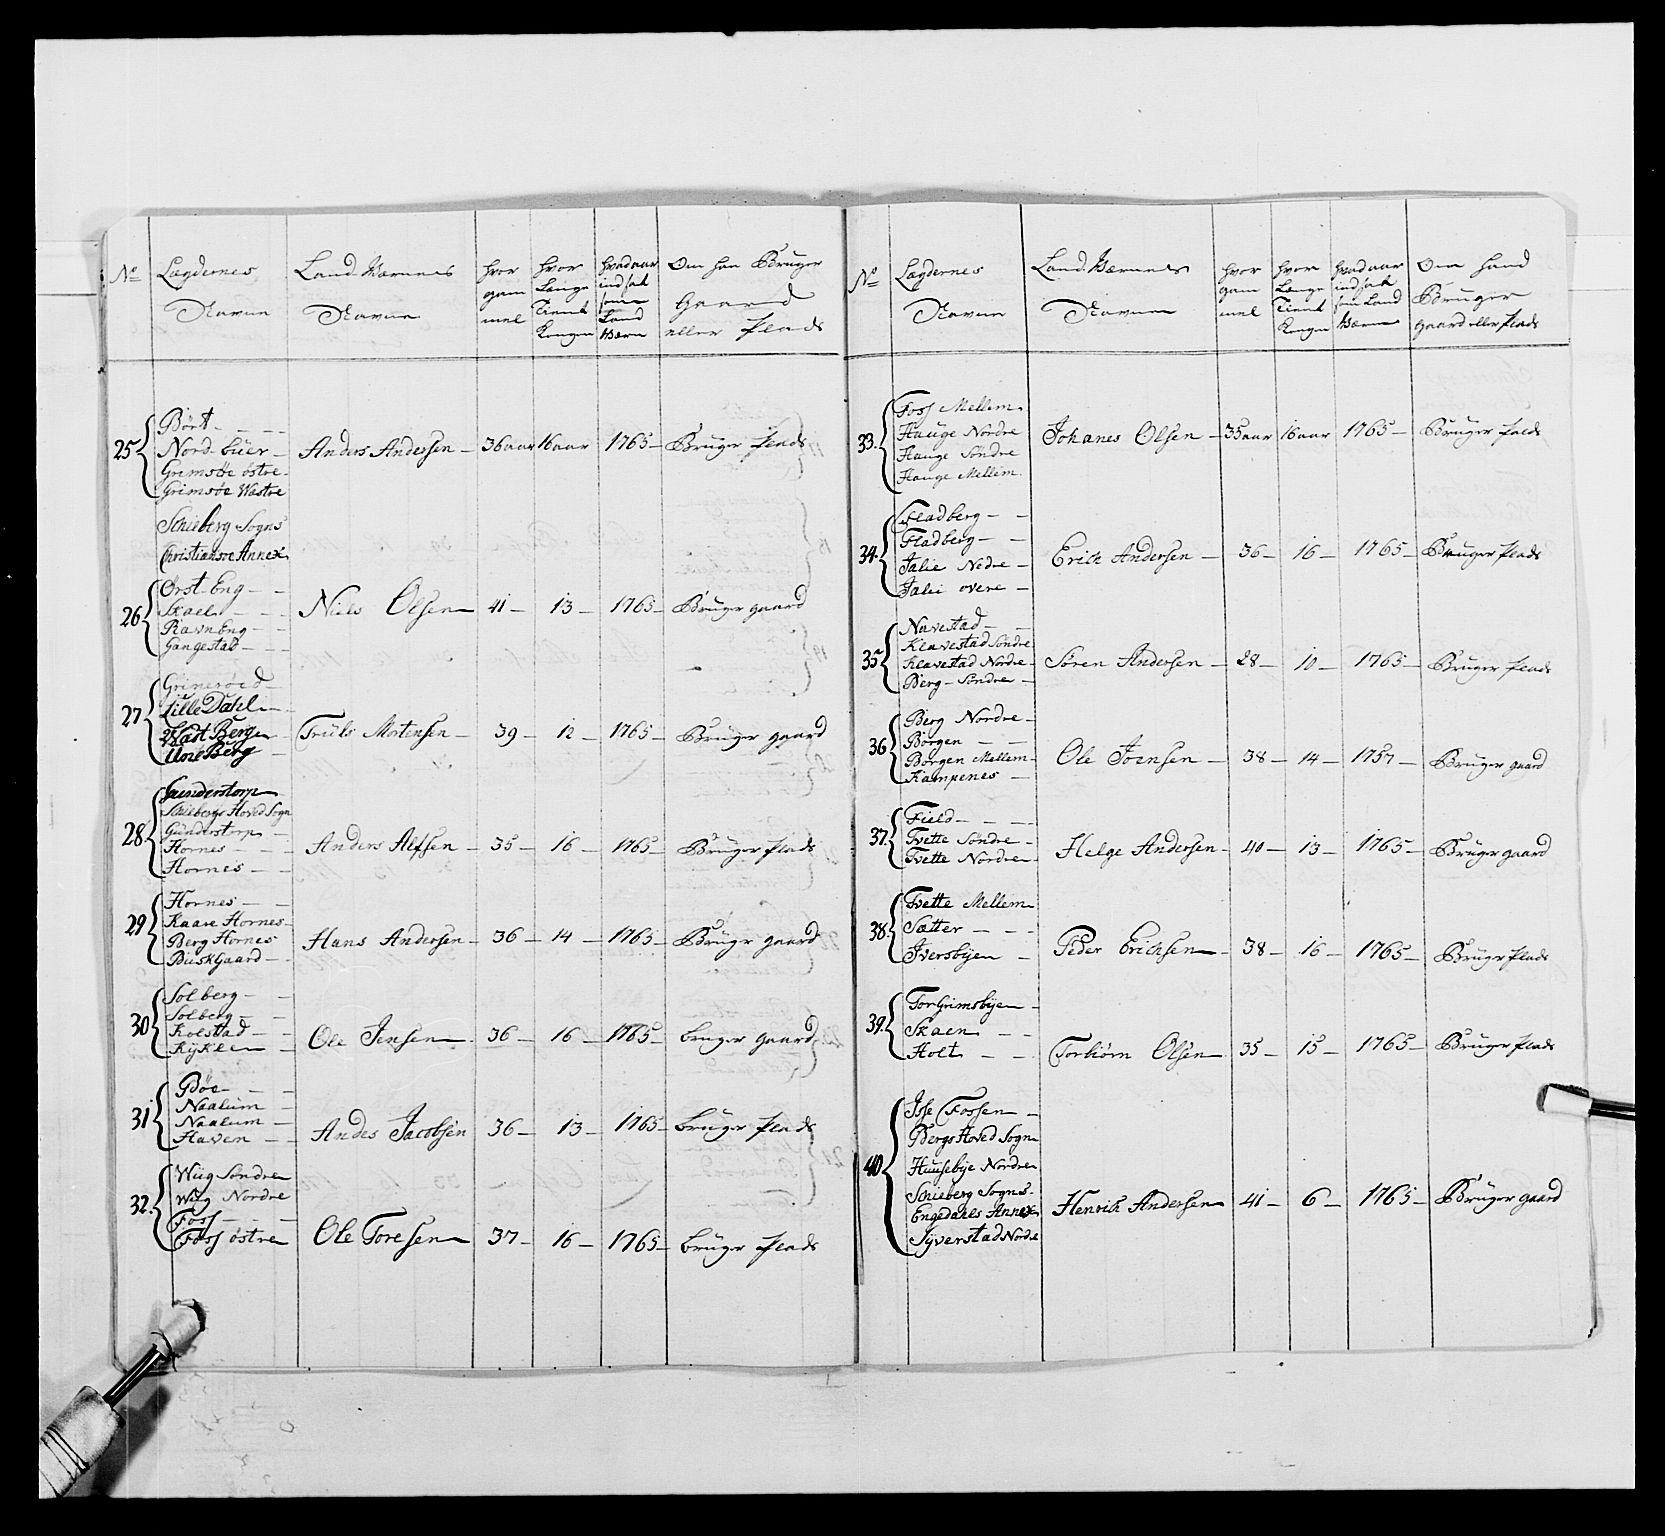 No Lægdernes Navne
Land Værnenes Navne
hvor gam mel
hvor Længe Tient Kongen
hvad aar indsat som Land Værn
Om han Bruger Gaard eller Plads
25 Bört
Nord büer
Grimsöe östre
Grimsöe Wæstre
Anders Andersen 36 aar 16 aar 1765 Bruger Plads
Schieberg Sogns
Christiansöe Annex
26 Örst Eng
Skael
RavnEng
Gangestad
Niels Olsen 41 13 1765 Bruger gaard
27 Grimsröed
Lille Dahl
Wast Bergen
Une Berg
Truls Mortensen 39 12 1765 Bruger gaard
28 Gunderstorp
Schiebergs Hoved Sogn
Günderstorp
Hornes
Hornes
Anders Alfsen 35 16 1765 Bruger Plads
29 Hornes
Kaare Hornes
Berg Hornes
BuskGaard
Hans Andersen 36 14 1765 Bruger gaard
30 Solberg
Solberg
Kolstad
Kÿklen
Ole Jensen 36 16 1765 bruger gaard
31 Böe
Naalum
Naalum
Haven
Andes Jacobsen 36 13 1765 bruger Plads
32 Wiig Söndre
Wiig Nordre
Foss
Foss östre
Ole Toresen 37 16 1765 bruger Plads
No Lægdernes Navne
Land Værnenes Navne
hvor gam mel
hvor Længe Tient Kongen
hvad aar indsat som Land Værn
Om hand Bruger gaard eller Plads
33 Foss Mellem
Hauge Nordre
Hauge Söndre
Hauge Mellem
Johanes Olsen 35 aar 16 aar 1765 Bruger Plads
34 Fladberg
Fladberg
Jalie Nedre
Jalie overe
Erich Andersen 36 16 1765 Bruger Plads
35 Navestad
Klavestad Söndre
Klavestad Nordre
Berg Söndre
Sören Andersen 28 10 1765 Bruger Plads
36 Berg Nordre
Borgen
Borgen Mellem
Kampenes
Ole Joensen 38 14 1757 Bruger gaard
37 Field
Tvette Söndre
Tvette Nordre
Helge Andersen 40 13 1765 Bruger gaard
38 Tvette Mellem
Sætter
Iversbÿen
Peder Erichsen 38 16 1765 Bruger Plads
39 TorGrimsbÿe
Skaen
Holt
Torbiörn Olsen 35 15 1765 Bruger Plads
40 Ise Fossen
Bergs Hoved Sogn
Huusebÿe Nordre
Schieberg Sogns
Engedahls Annex
Syverstad Nordre
Henrich Andersen 41 6 1765 Bruger gaard